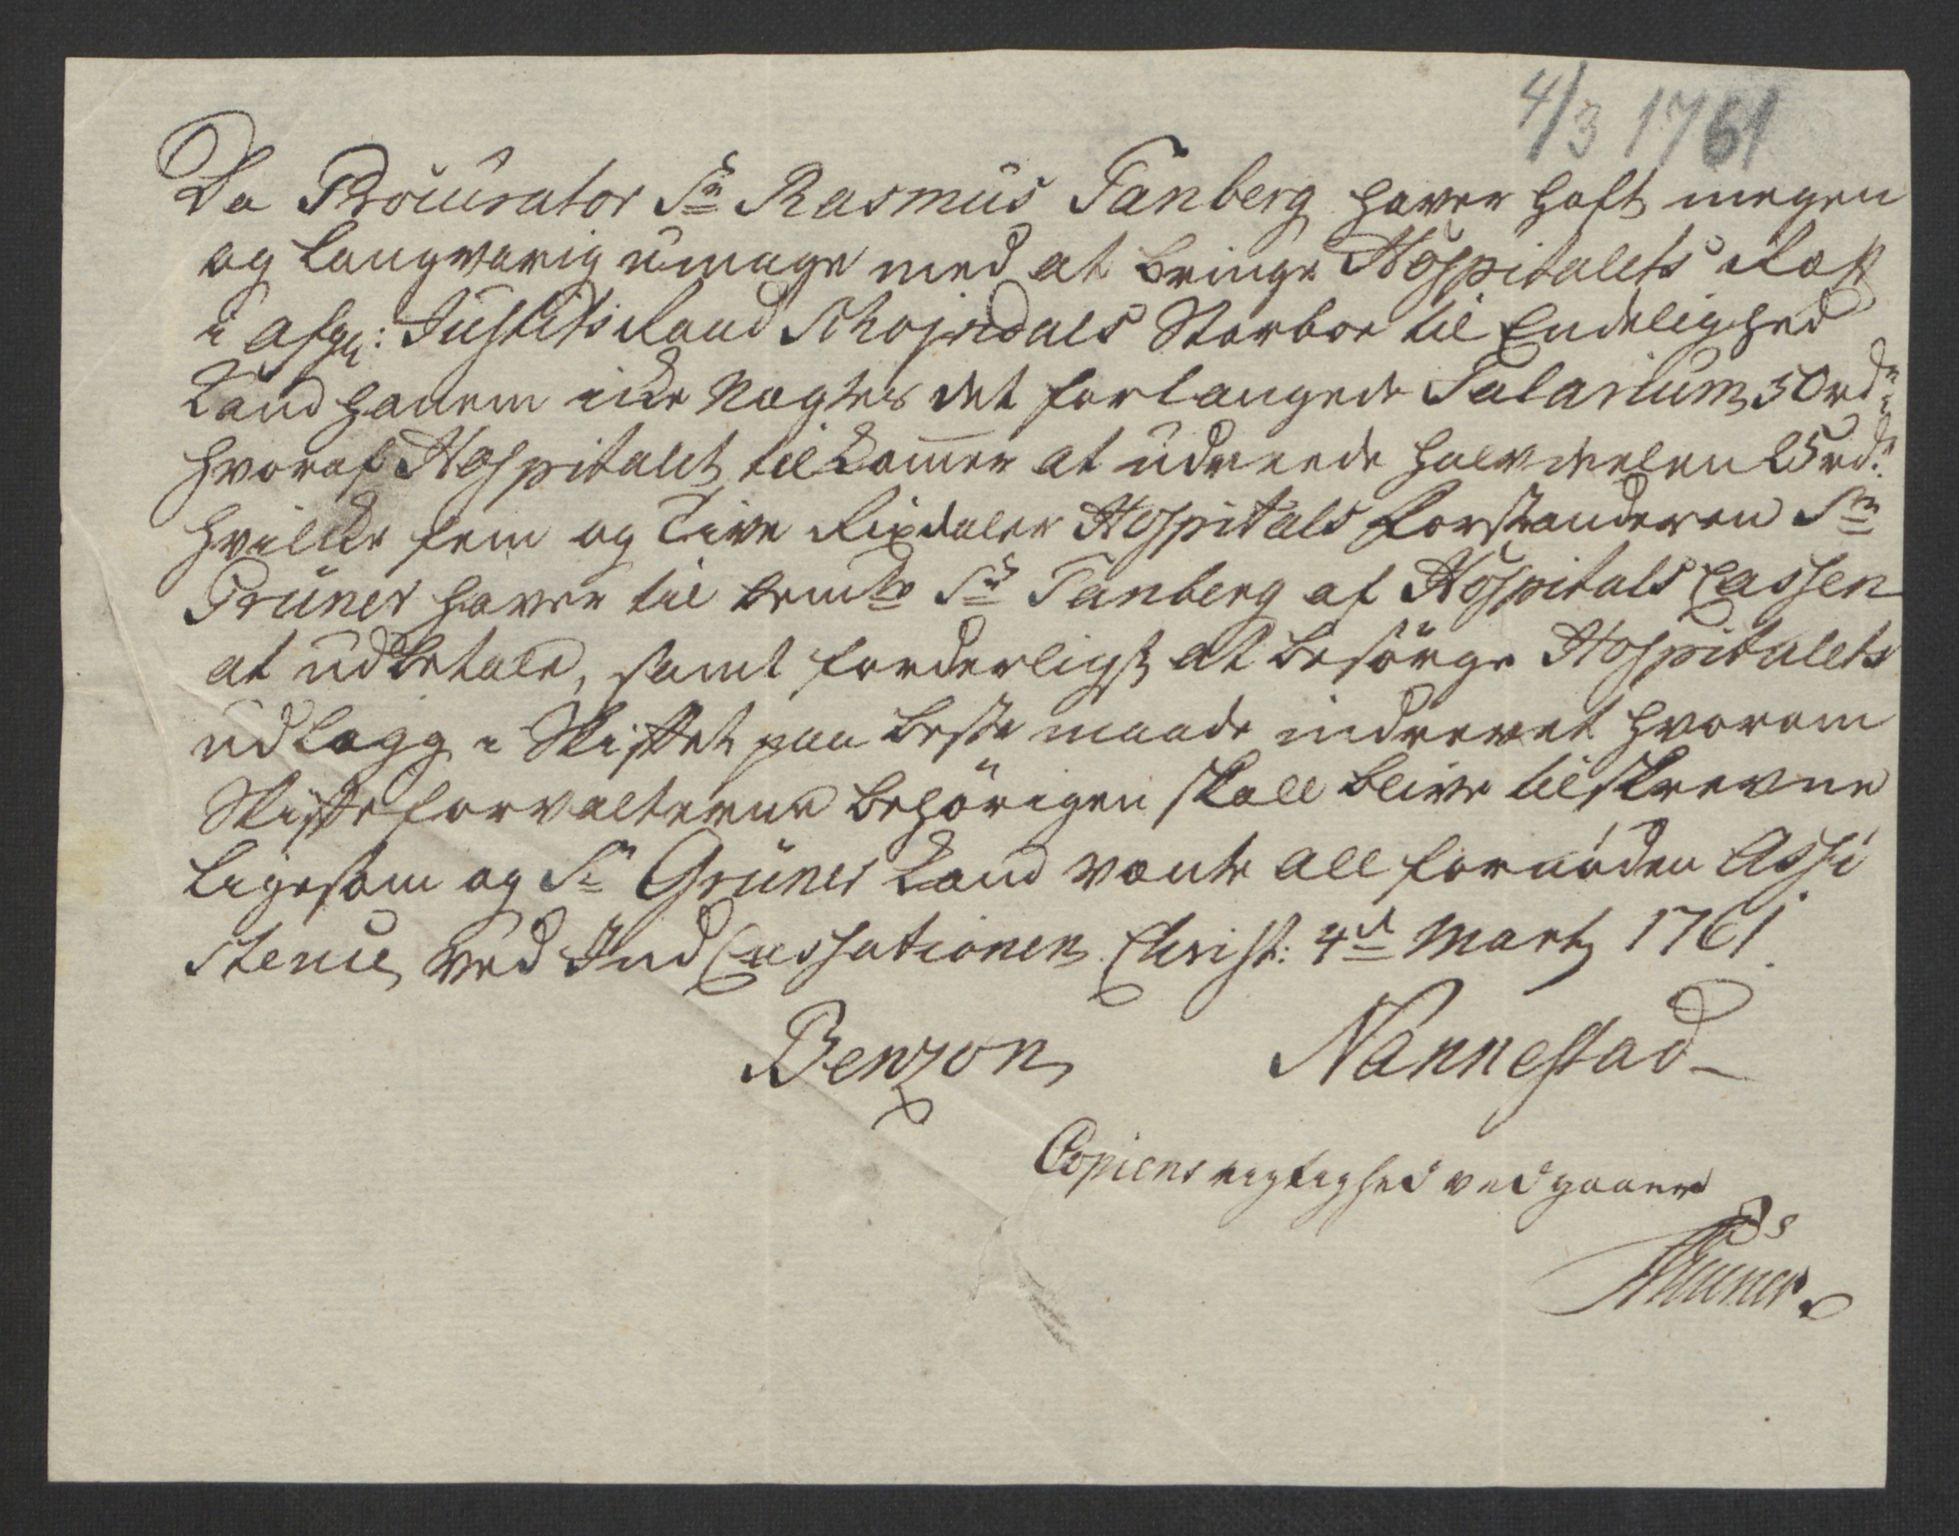 4/3 1761
Da Procurator Sr Rasmus Tanberg haver haft megen
og langvarig umage med at bringe Hospitalets Ræst
i afg: Justits Raad Schojsdals Sterboe til Endelighed
Kand hanem icke Nægtes det forlangede Salarium 50 rdr
hvoraf Hospitalet tilkommer at udreede halvdelen 25 rdr:
hvilcke fem og Tive Rixdaler Hospitals Forstanderen Sr
Gruner haver til bemte Sr Tanberg af Hospitals Cassen
at udbetale, samt forderligst at besörge Hospitalets
udlægg i Skiftet paa beste maade inddrevet hvorom
Skifteforvalterne behörigen skall blive tilskrevne
ligesom og Sr Grüner Kand vænte all fornöden Assi
stence ved Ind Cassationen Christ: 4de Martz 1761.
Benzon Nannestad
Copiens rigtighed vedgaaer
Gruner